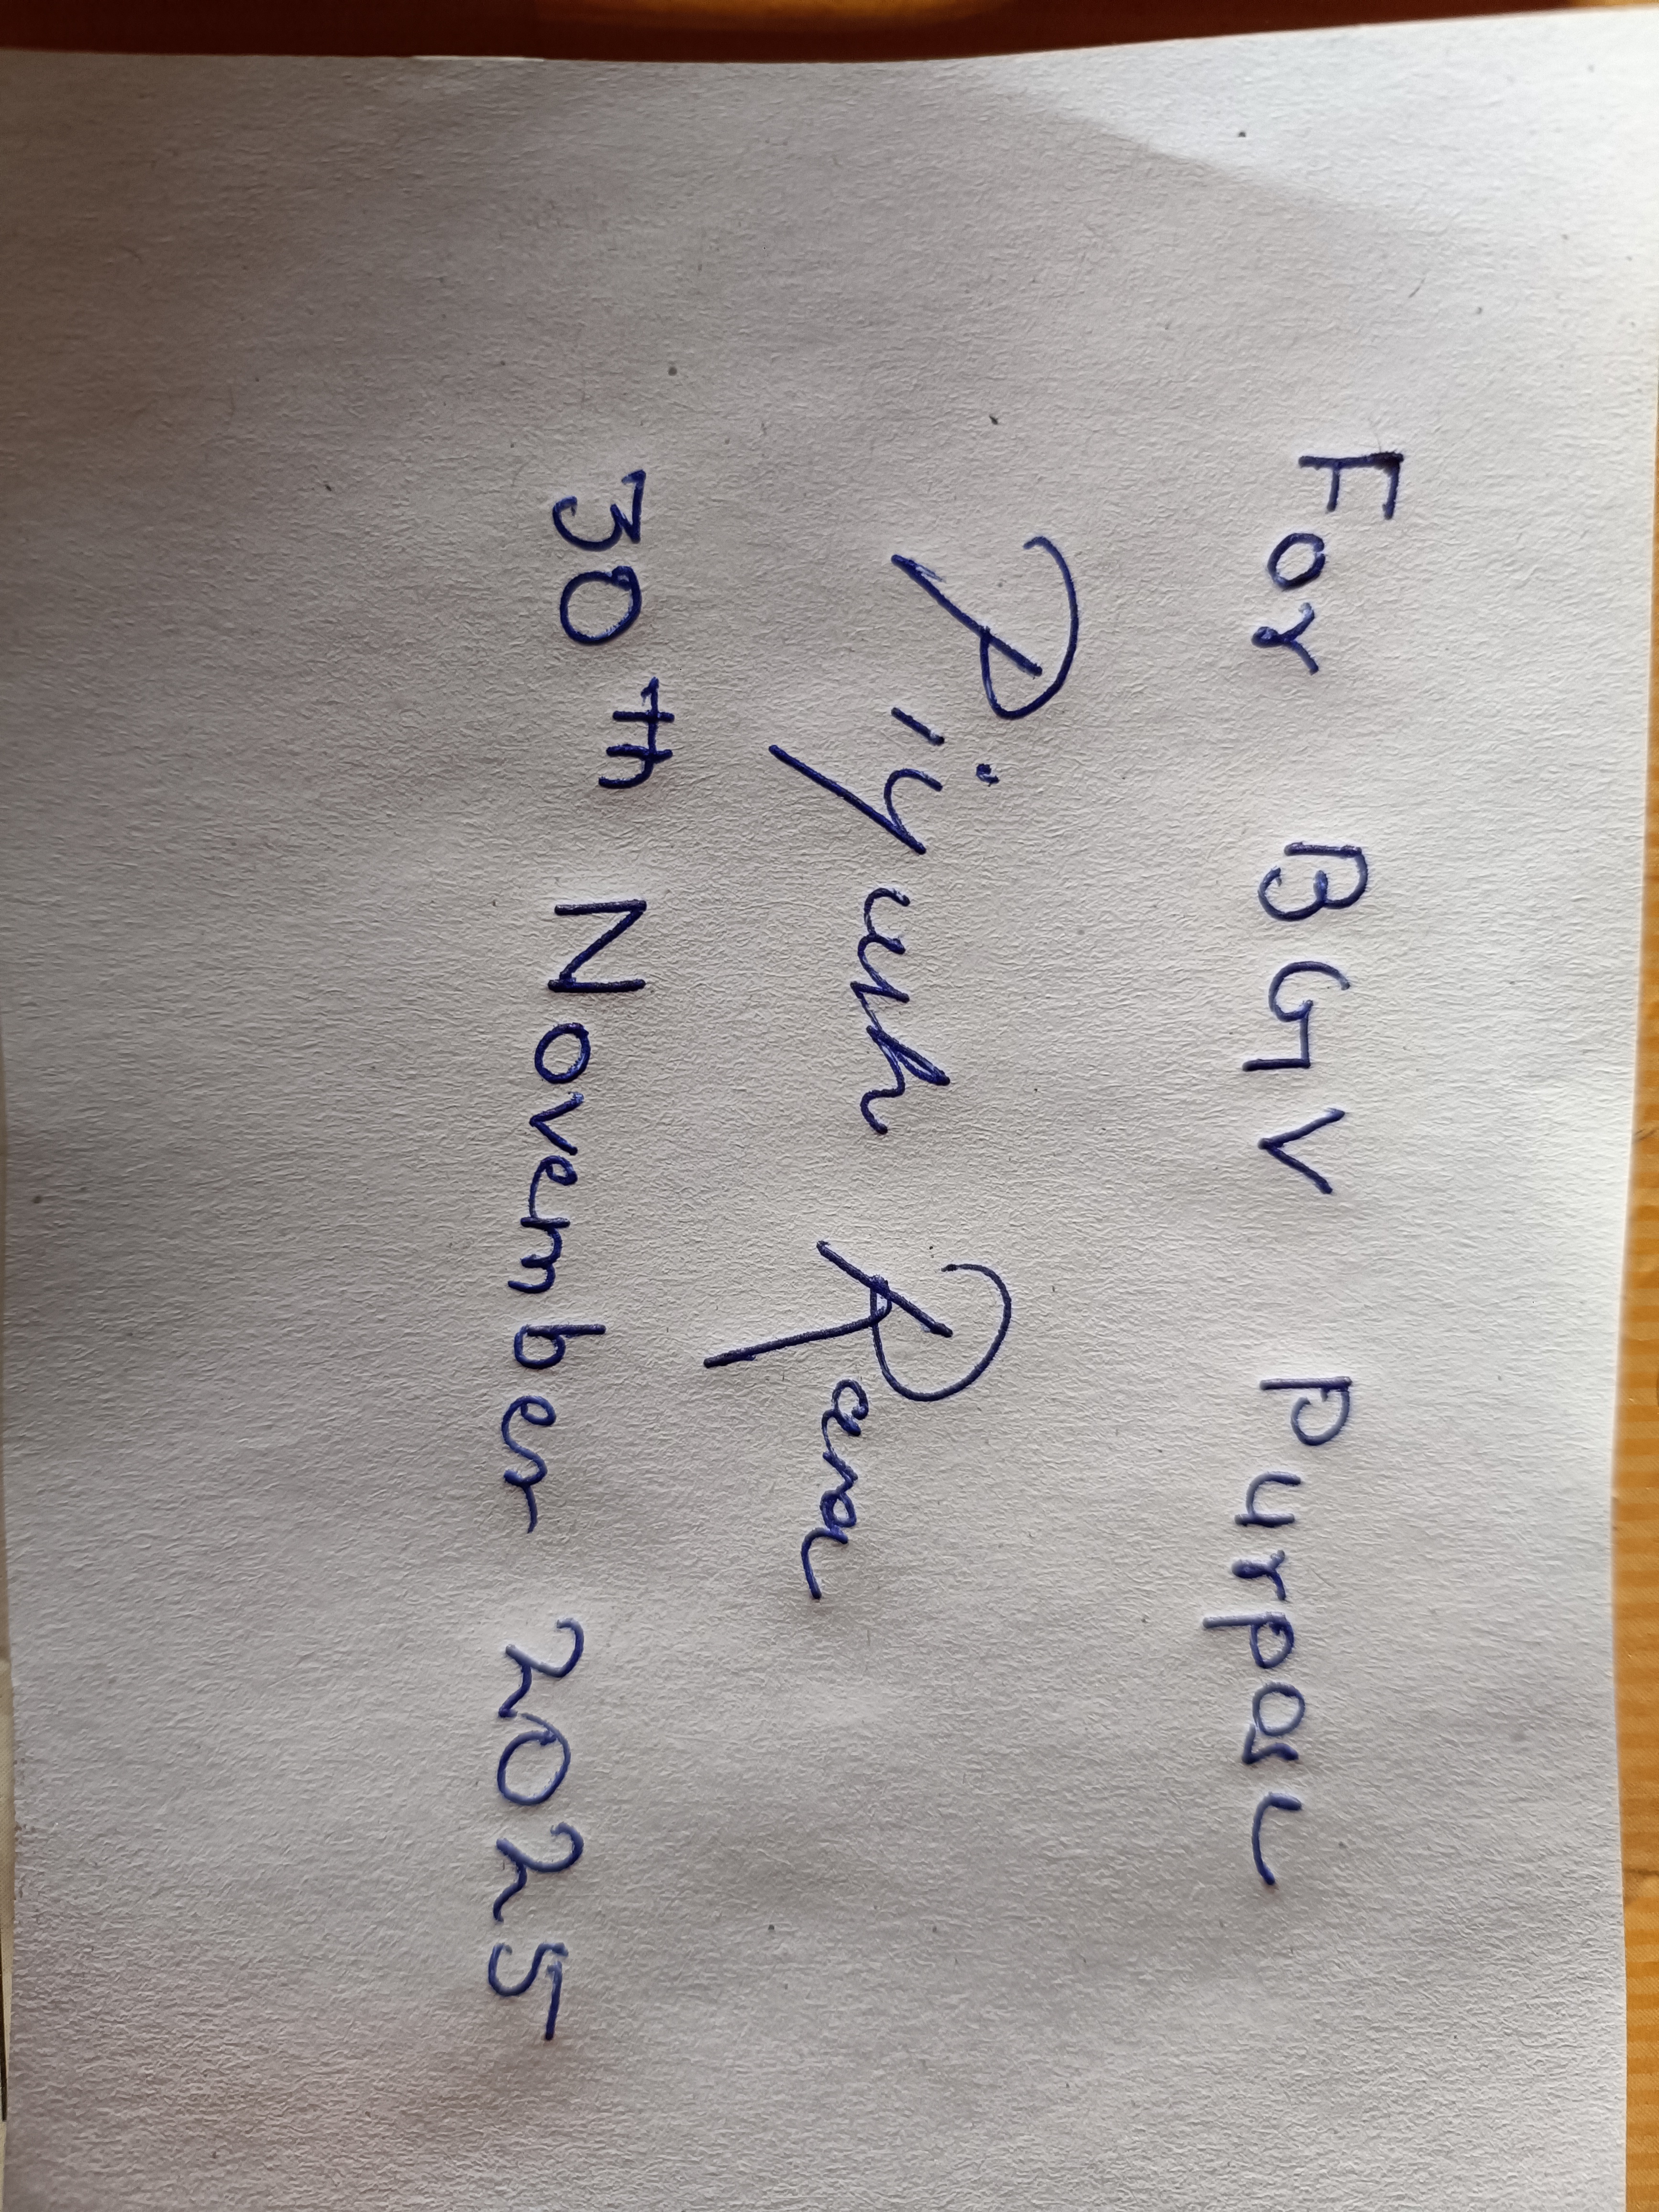 For BGV Purpose
Piyush Rana
30th November 2025